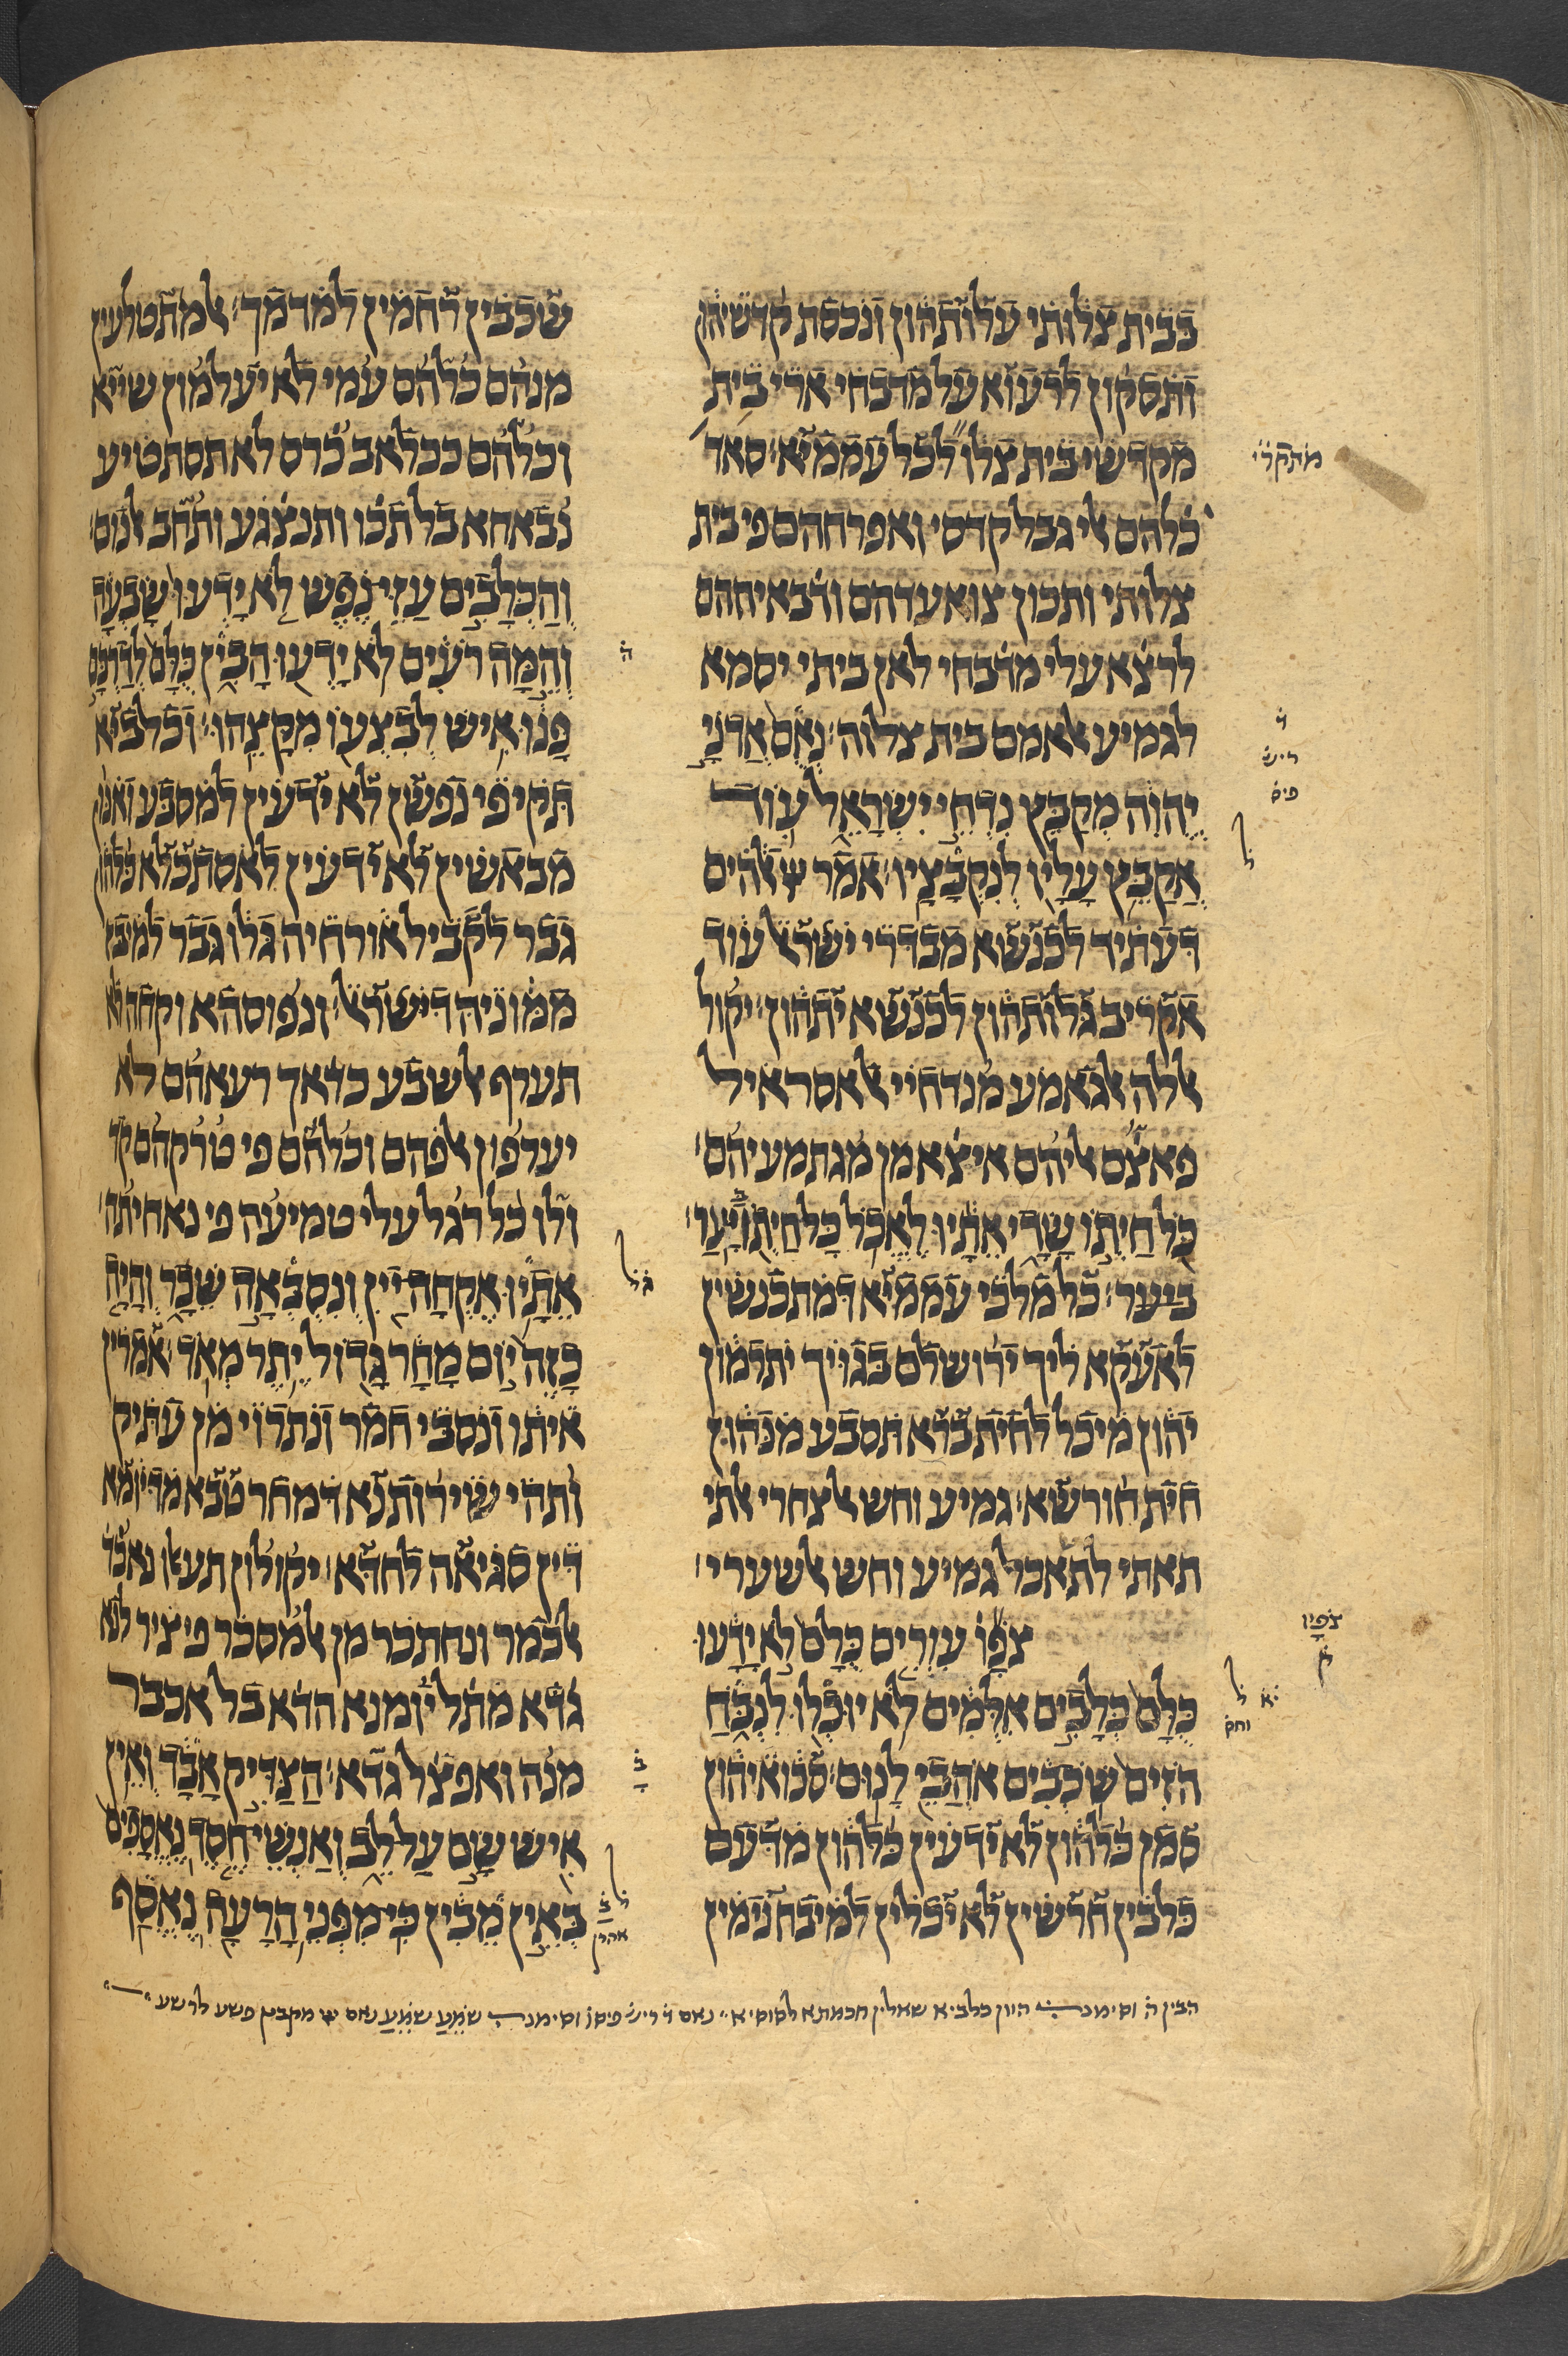 בבית צלותי עלותהון ונכסת קדשיהון
ותסקון לרעוא על מדבחי ארי בית
מקדשי בית צלו לכל עממיא׃ סאד
כלהם ﭏי גבל קדסי ואפרחהם פי בית
צלותי ותכון צואעדהם ודבאיחהם
לרצא עלי מדבחי לאן ביתי יסמא
לגמיע ﭏאמם בית צלוה׃ נאם אדני
יהוה מקבץ נדחי ישראל עוד
אקבץ עליו לנקבציו׃ אמר ﭏהים
דעתיד לכנשא מבדרי ישרﭏ עוד
אקריב גלותהון לכנשא יתהון׃ יקול
ﭏלה ﭏגאמע מנדחיי ﭏאסראיל
פאצם ﭏיהם איצא מן מגתמעיהם׃
כל חיתו שדי אתיו לאכל כל חיתו יער׃
ביער׃ כל מלכי עממיא דמתכנשין
לאעקא ליך ירושלם בגויך יתרמון
יהון מיכל לחית ברא תסבע מנהון
חית חורשא׃ גמיע וחש ﭏצחרי ﭏתי
תאתי לתאכל גמיע וחש ﭏשערי׃
צפו עורים כלם לא ידעו
כלם כלבים אלמים לא יוכלו לנבח
הזים שכבים אהבי לנום׃ סכואיהון
סמן כלהון לא ידעין כלהון מדעם
כלבין חרשין לא יכלין למיבח נימין
שכבין רחמין למדמך׃ ﭏמתטלעין
מנהם כלהם עמי לא יעלמון שייא
וכלהם ככלאב כרס לא תסתטיע
נבאחא בל תכו ותנצגע ותחב ﭏנום׃
והכלבים עזי נפש לא ידעו שבעה
והמה רעים לא ידעו הבין כלם לדרכם
פנו איש לבצעו מקצהו׃ וכלביא
תקיפי נפשן לא ידעין למסבע ואנון
מבאשין לא ידעין לאסתכלא כלהון
גבר לקביל אורחיה גלו גבר למיבז
ממוניה דישרﭏ׃ ונפוסהא וקחה לא
תערף ﭏשבע כדאך רעאהם לא
יערפון ﭏפהם וכלהם פי טרקהם קד
ולו כל רגל עלי טמיעה פי נאחיתה׃
אתיו אקחה יין ונסבאה שכר והיה
כזה יום מחר גדול יתר מאד׃ אמרין
איתו ונסבי חמר ונתרוי מן עתיק
ותהי שירותנא דמחר טבא מדיומא
דין סגיאה לחדא׃ יקולון תעﭏו נאכד
ﭏכמר ונחתכר מן ﭏמסכר פיציר לנא
גדא מתל יומנא הדא בל אכבר
מנה ואפצל גדא׃ הצדיק אבד ואין
איש שם על לב ואנשי חסד נאספים
באין מבין כי מפני הרעה נאסף
צפיו
הבין ה וסימנ היון כלביא שאלין חכמתא לסוסיא׃ נאם ד ריש פיס וסימנ שמע שמע נאם יי מקבץ פשע לרשע